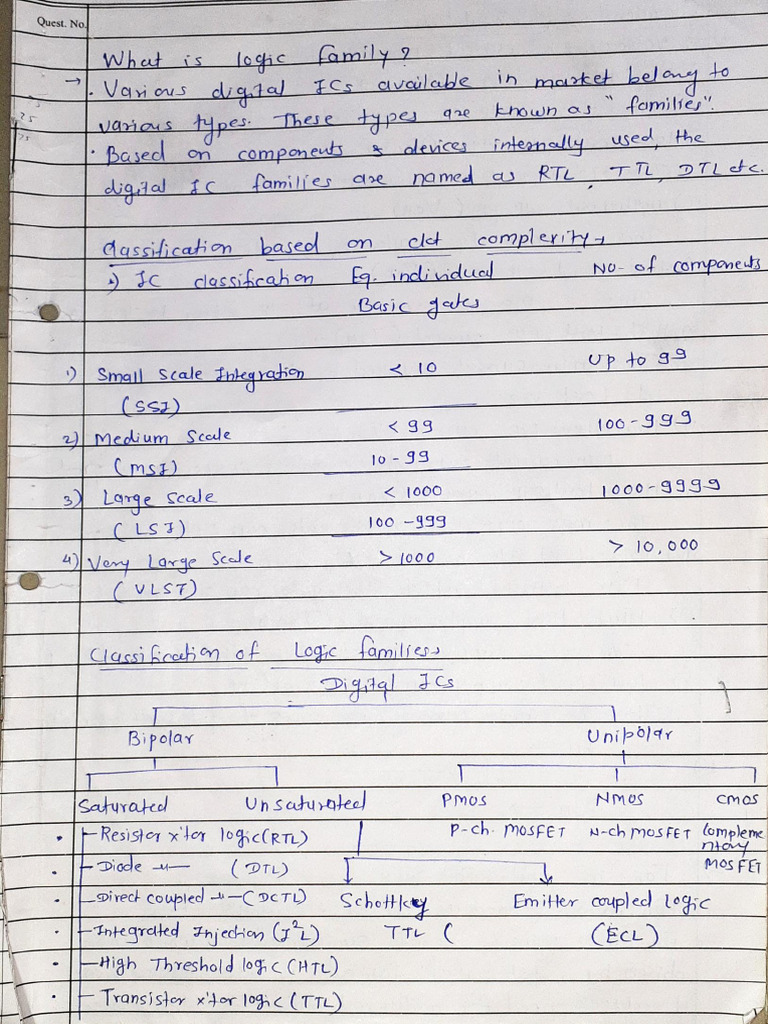 Quest. No.
What is logic family?
→ • Various digital ICs available in market belong to
various types. These types are known as "families".
• Based on components & devices internally used, the
digital IC families are named as RTL, TTL, DTL etc.
Classification based on ckt complerity→
•) IC classification Eq. individual No- of components
Basic gates
1) Small Scale Integration < 10 Up to 99
(SSI)
2) Medium Scale < 99 100-999
(MSI) 10-99
3) Large Scale < 1000 1000-9999
(LSI) 100-999
4) Very Large Scale > 1000 > 10,000
(VLSI)
Classification of Logic families→
Digital ICs
Bipolar Unipolar
Saturated Unsaturated PMOS NMOS CMOS
• Resistor x'tor logic (RTL) P-ch. MOSFET N-ch MOSFET Compleme
ntary
• Diode -"- (DTL) MOSFET
• Direct coupled -"- (DCTL) Schottkey Emitter coupled logic
• Integrated Injection (I²L) TTL ( (ECL)
• High Threshold logic (HTL)
• Transistor x'tor logic (TTL)